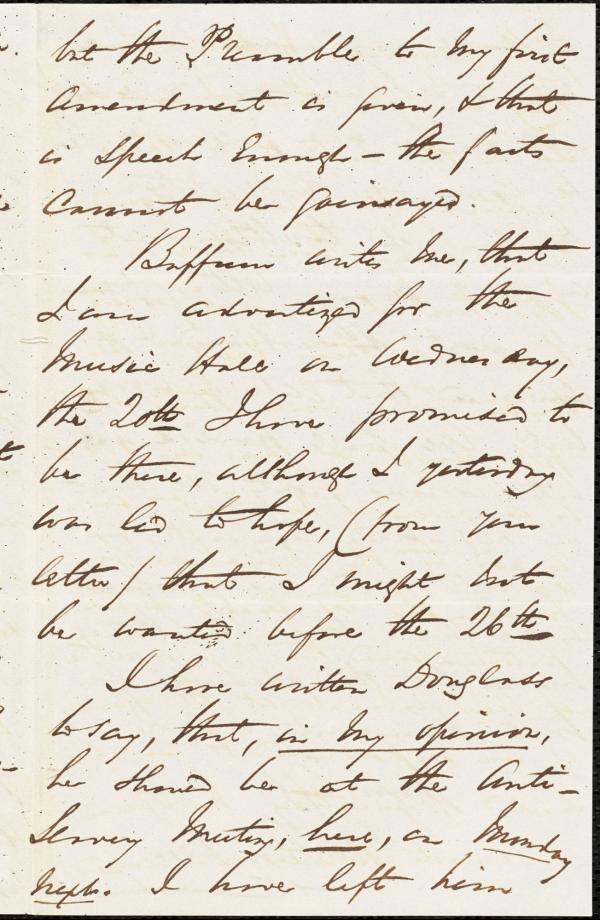 but the Preamble to my first
Amendment is given, & that
is speech Enough – the facts
cannot be gainsayed.
Buffum writes me, that
I am advertized for the
Music Hall on Wednesday,
the 20th I have promised to
be there, although I yesterday
was led to hope, (from your
letter) that I might not
be wanted before the 26th
I have written Douglass
to say, that, in my opinion,
he should be at the Anti-
Slavery Meeting, here, on Monday
next. I have left him